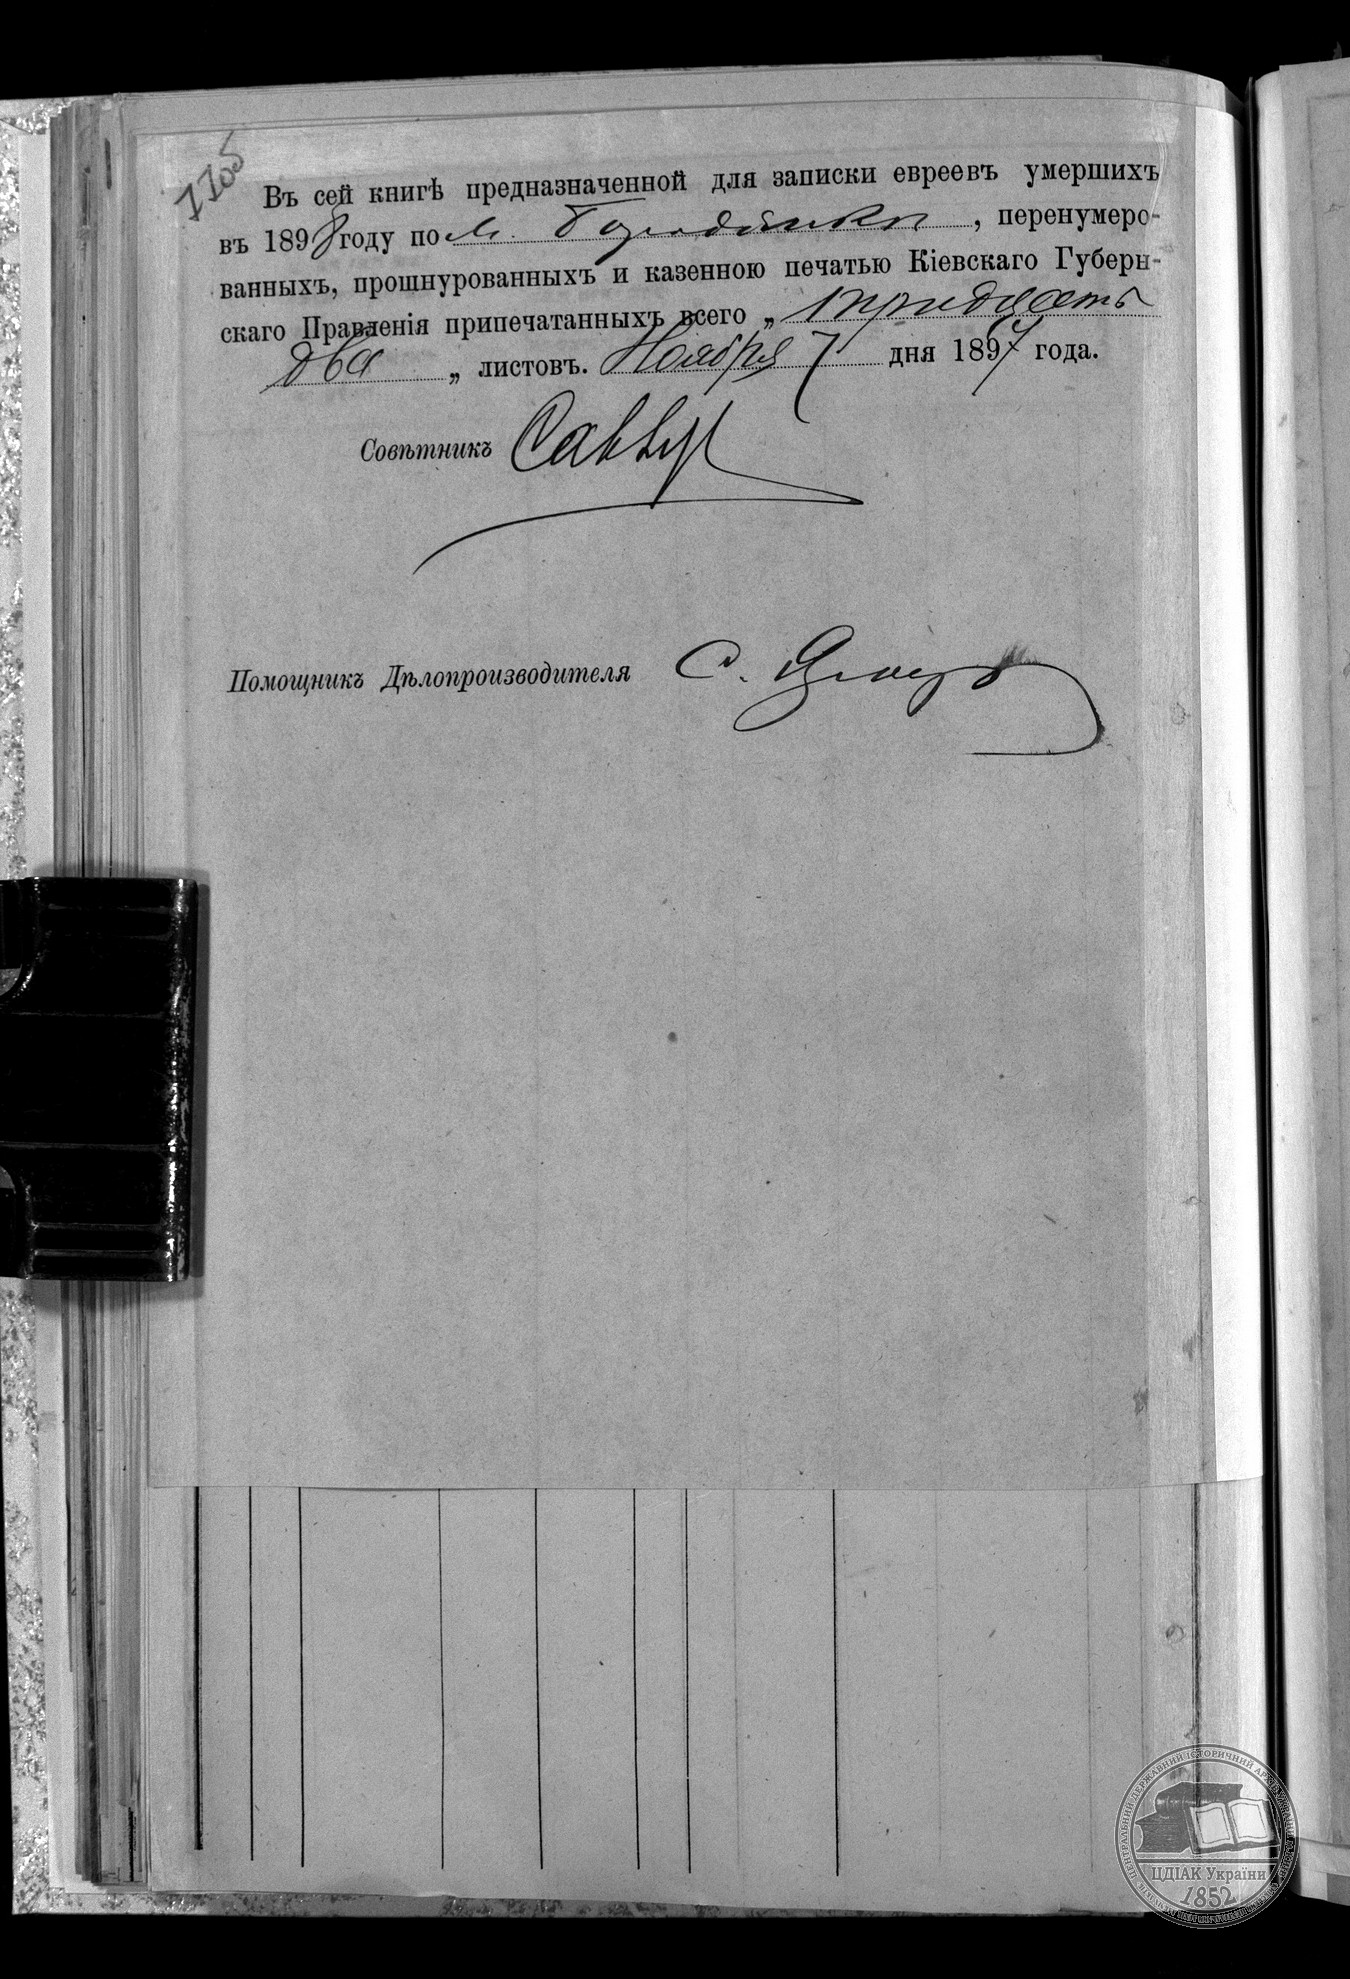 1105
Въ сей книгѣ предназначенной для записки евреевъ умершихъ
въ 1898 году по м. Бородянки, перенумеро-
ванныхъ, прошнурованныхъ и казенною печатью Кіевскаго Губерн-
скаго Правленія припечатанныхъ всего „ тридцать
два „ листовъ. Ноября 7 дня 1897 года.
Совѣтникъ
Помощникъ Дѣлопроизводителя С.
ЦДІАК України
1852